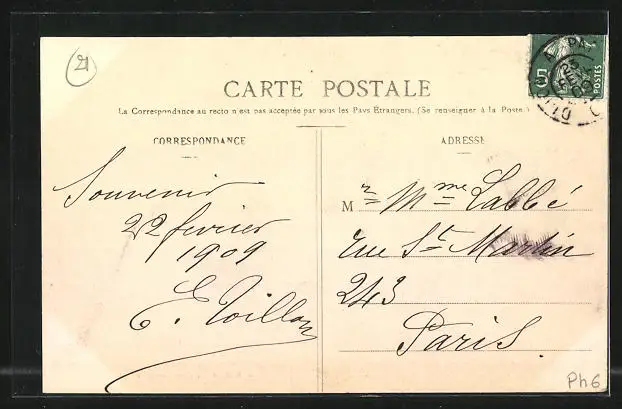 21
CARTE POSTALE
La Correspondance au recto n'est pas acceptée par tous les Pays Étrangers. (Se renseigner à la Poste.)
CORRESPONDANCE
Souvenir
22 fevrier
1909
ADRESSE
Mr = Mme Labbé
rue St Martin
243
Paris.
5
POSTES
Ph6